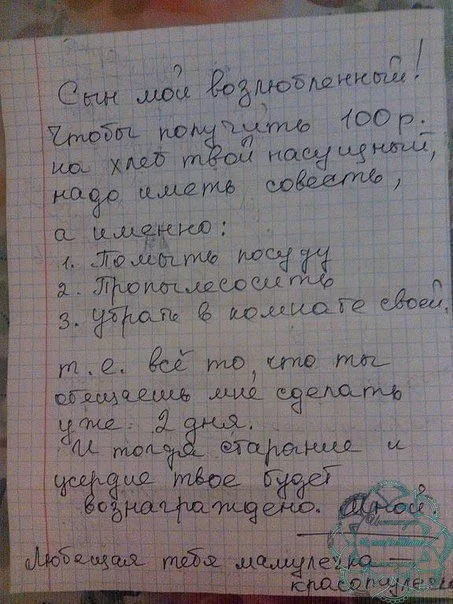 Сын мой возлюбленный!
Чтобы получить 100 р.
на хлеб твой насущный,
надо иметь совесть,
а именно:
1. Помыть посуду
2. Пропылесосить
3. Убрать в комнате своей.
т.е. всё то, что ты
обещаешь мне сделать
уже 2 дня.
И тогда старание и
усердие твое будет
вознаграждено. Мной
Любящая тебя мамулечка —
красопулечка